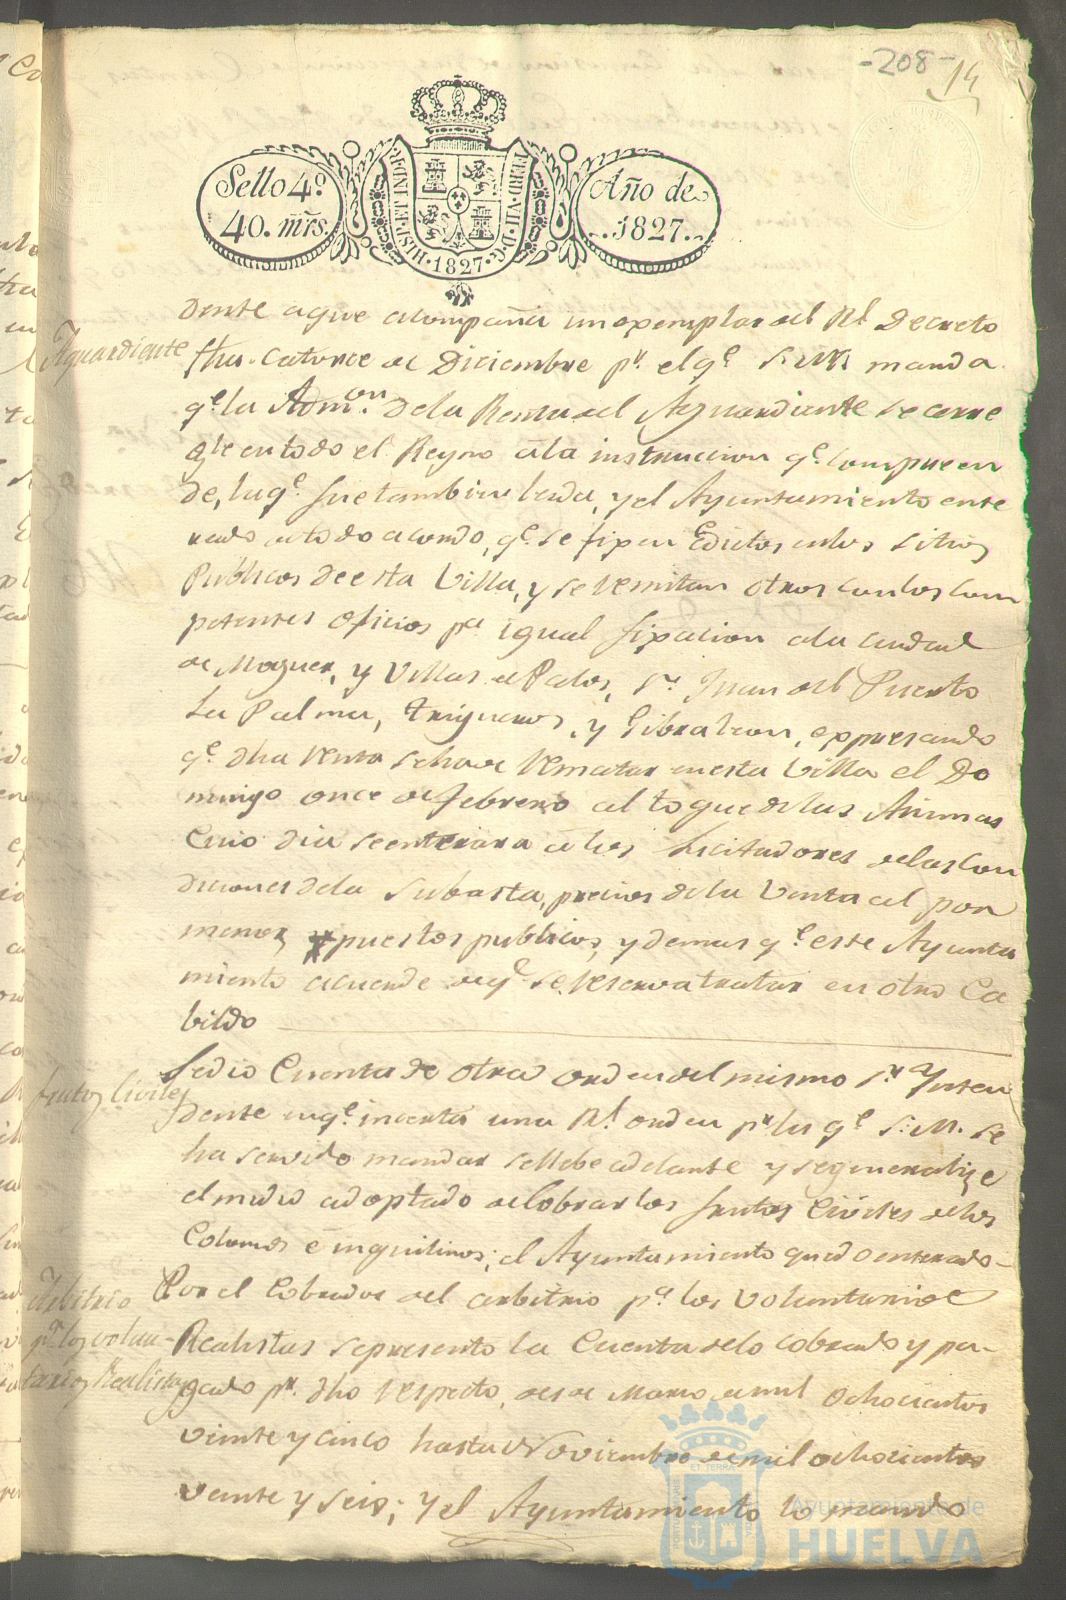 -208-
14
Sello 4º
40. mrs.
HISP. ET IND. R.
1827
FERD. VII. D. G.
Año de
..1827..
dente aque acompaña un exemplar del Rl. Decreto
Aguardiente
fha. Catorce de Diciembre pr. el qe. S. M. manda
qe. la Admon. dela Renta del Aguardiente se arre
gle en todo el Reyno a la instruccion qe. compreen
de, la qe. fue tambien leida, y el Ayuntamiento ente
rado de todo acordo, qe. se fixen Edictos en los sitios
Publicos de esta Villa, y se remitan otros con los com
petentes oficios pa. igual fixacion a la ciudad
de Moguer, y Villas de Palos, Sn. Juan del Puerto
La Palma, Trigueros, y Gibraleon, expresando
qe. dha renta se ha de rematar en esta Villa el Do
mingo once de Febrero al toque de las Animas
Cuio dia se enterara a los Licitadores de las Con
diciones dela Subasta, precios de la Venta al por
menor, puestos publicos, y demas qe. este Ayunta
miento acuerde de qe. se reserva tratar en otro Ca
bildo
Se dio Cuenta de otra orden del mismo Sr. Inten
frutos Civiles
dente en qe. inserta una Rl. orden pr. la qe. S. M. se
ha servido mandar se llebe adelante y se generalize
el medio adoptado de Cobrar los frutos Civiles de los
Colonos e inquilinos; el Ayuntamiento quedo enterado
Por el Cobrador del arbitrio pa. los Voluntarios
Arbitrio
pa. los volun-
tarios Realistas
Realistas se presento la Cuenta de lo cobrado y pa-
gado pr. dho respecto, desde Marzo de mil ochocientos
veinte y cinco hasta Noviembre de mil ochocientos
veinte y seis; y el Ayuntamiento la mando
Ayuntamiento de
HUELVA